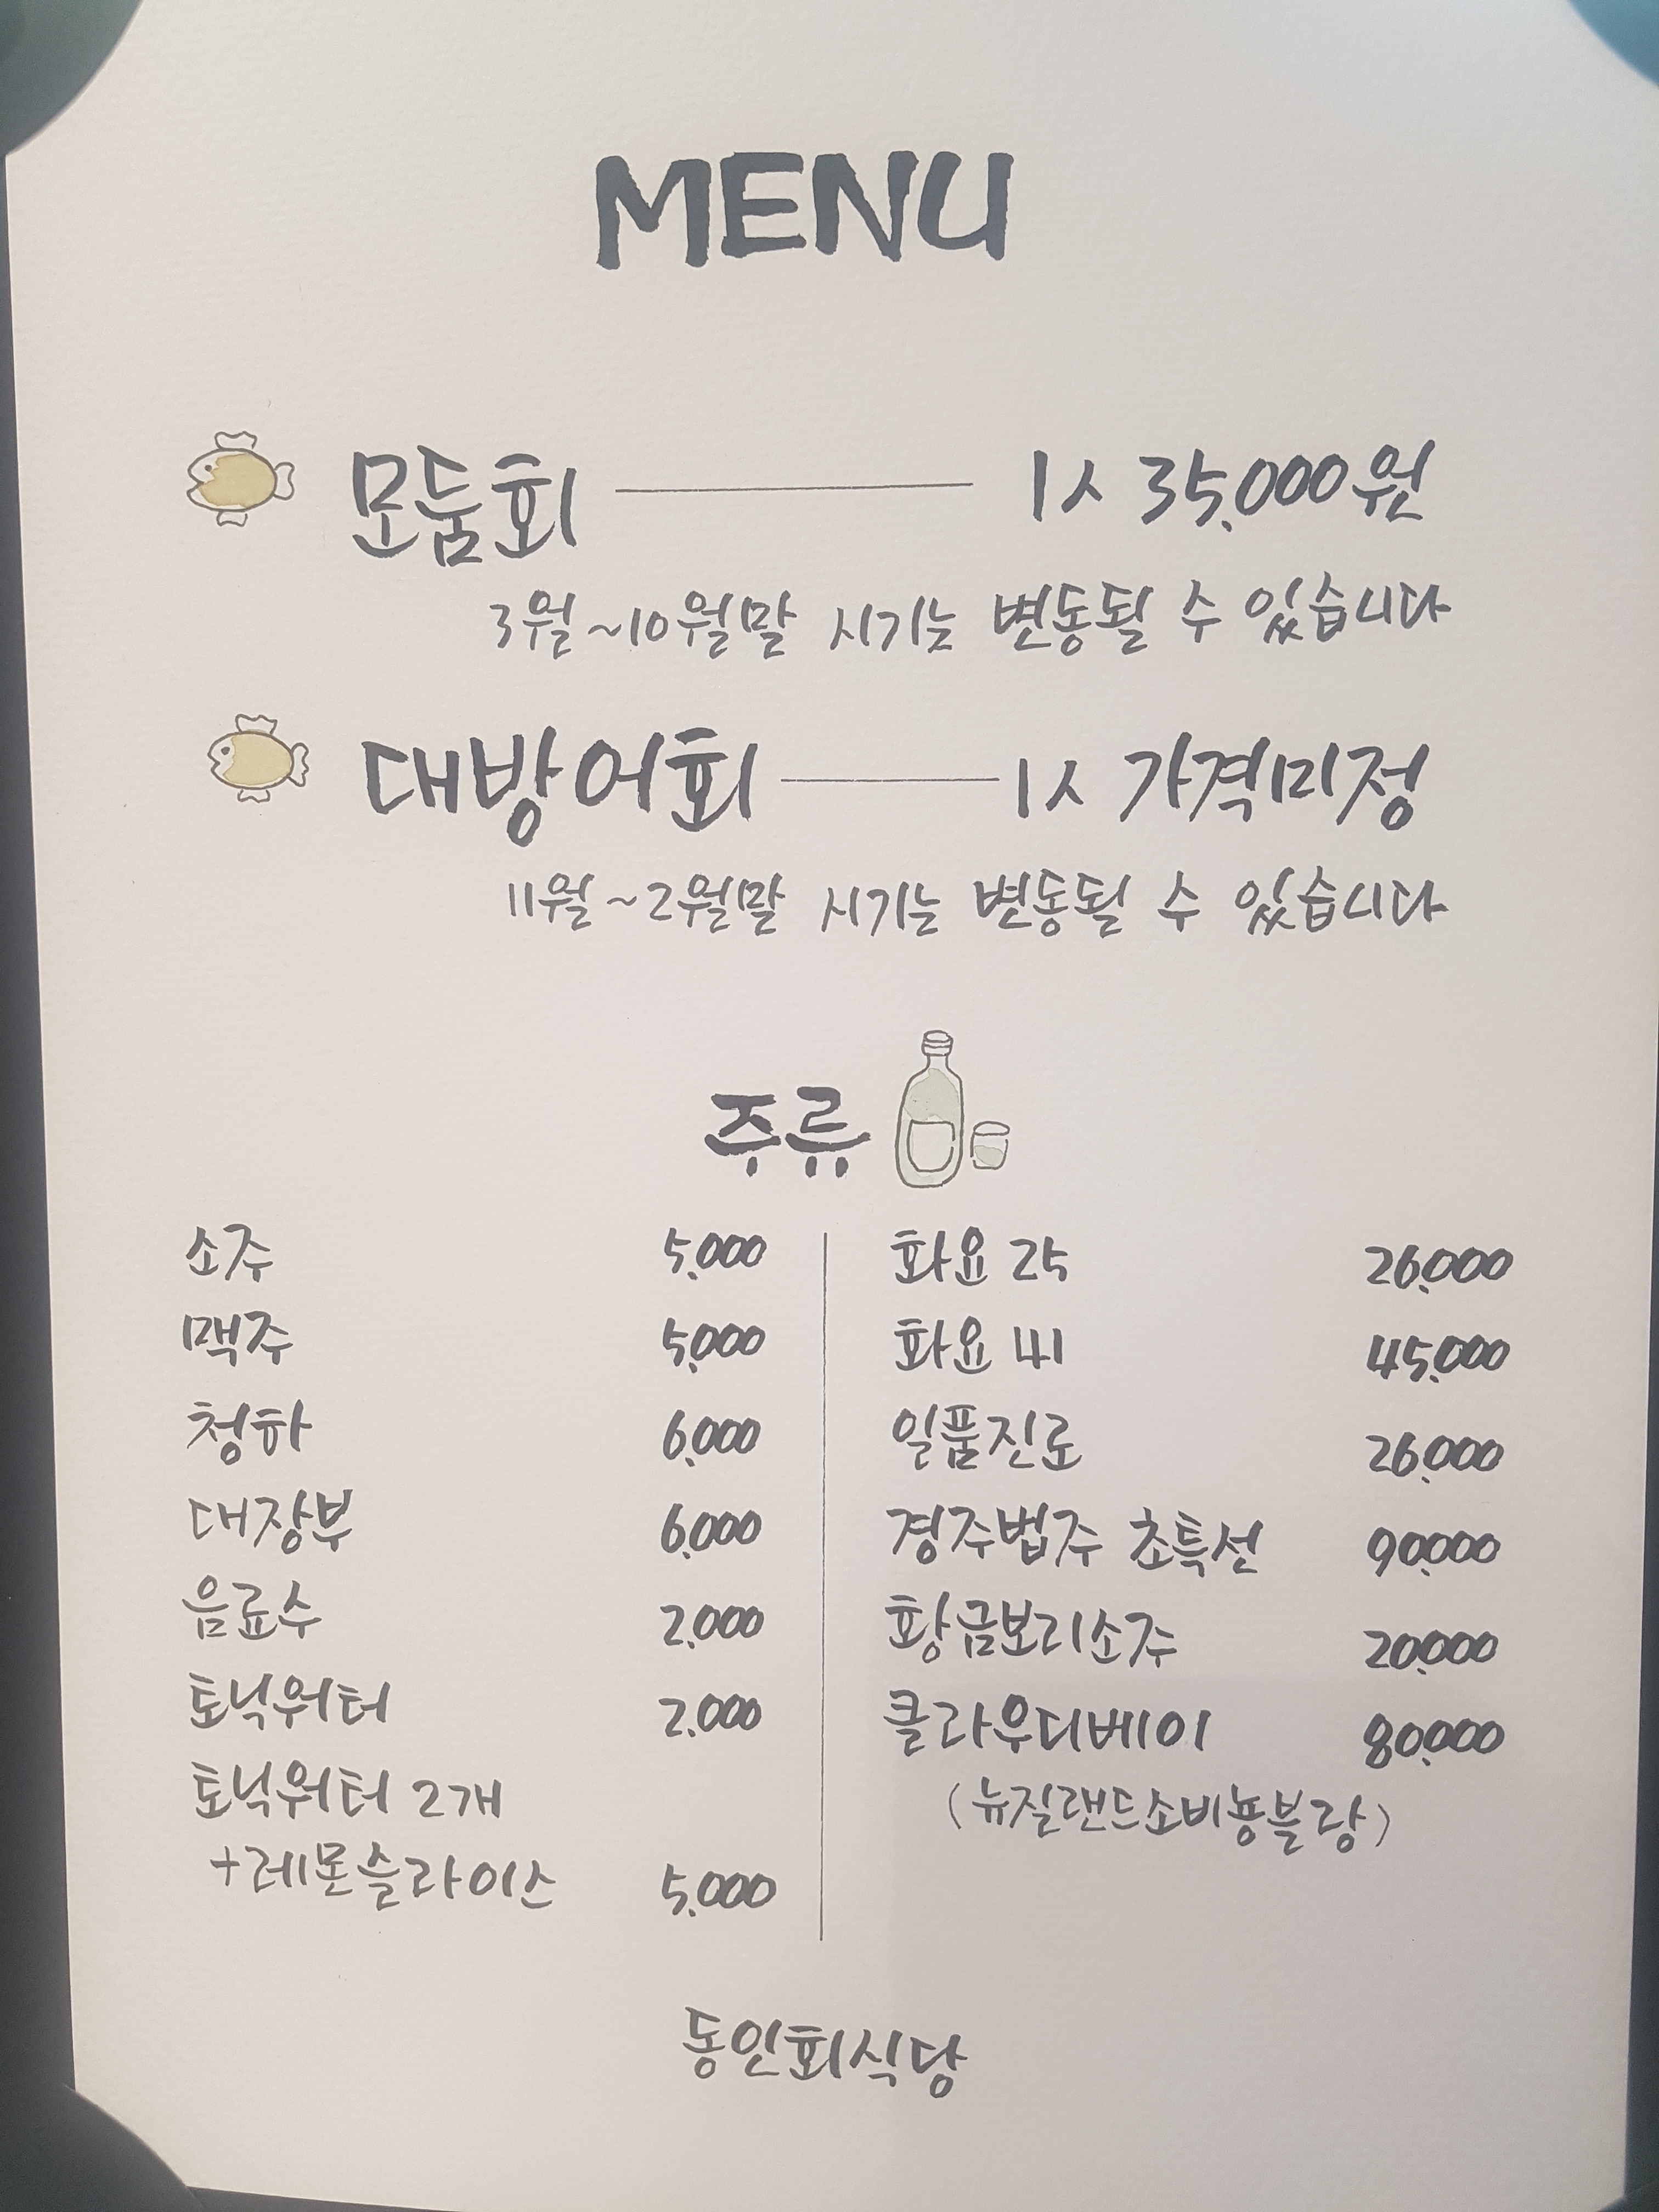 MENU
모둠회 1人 35,000원
3월~10월말 시기는 변동될 수 있습니다
대방어회 1人 가격미정
11월~2월말 시기는 변동될 수 있습니다
주류
소주 5,000
맥주 5,000
청하 6,000
대장부 6,000
음료수 2,000
토닉워터 2,000
토닉워터 2개
+레몬슬라이스 5,000
화요 25 26,000
화요 41 45,000
일품진로 26,000
경주법주 초특선 90,000
황금보리소주 20,000
클라우디베이 80,000
(뉴질랜드소비뇽블랑)
동인회식당